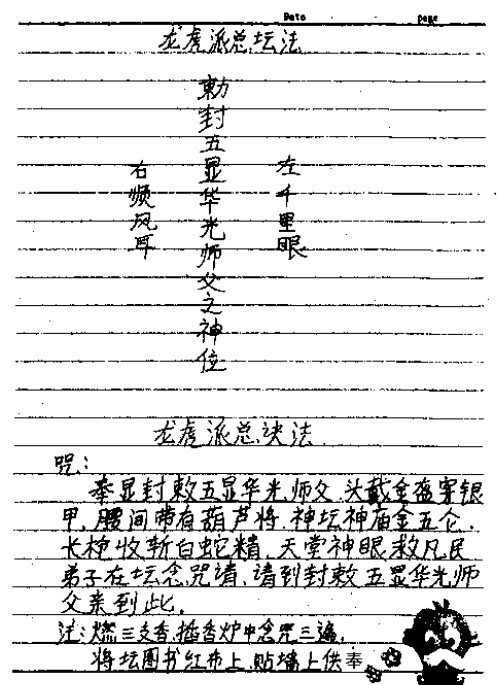 Date page
龙虎派总坛法
勅封五显华光师父之神位
左千里眼
右顺风耳
龙虎派总决法
咒:
奉显封敕五显华光师父,头戴金盔穿银
甲,腰间带有葫芦将,神坛神庙金五仑,
长枪收斩白蛇精,天堂神眼救凡民
弟子在坛念咒请,请到封敕五显华光师
父亲到此,
注:燃三支香,插香炉中念咒三遍,
将坛图书红布上,贴墙上供奉